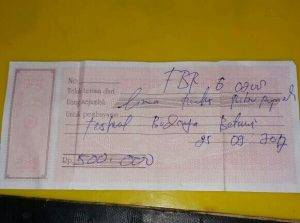 No.
Telah terima dari FBR G 0205
Uang sejumlah Lima Ratus Ribu Rupiah
Untuk pembayaran
Festival Budaya Betawi
25 09 2017
Rp. 500.000